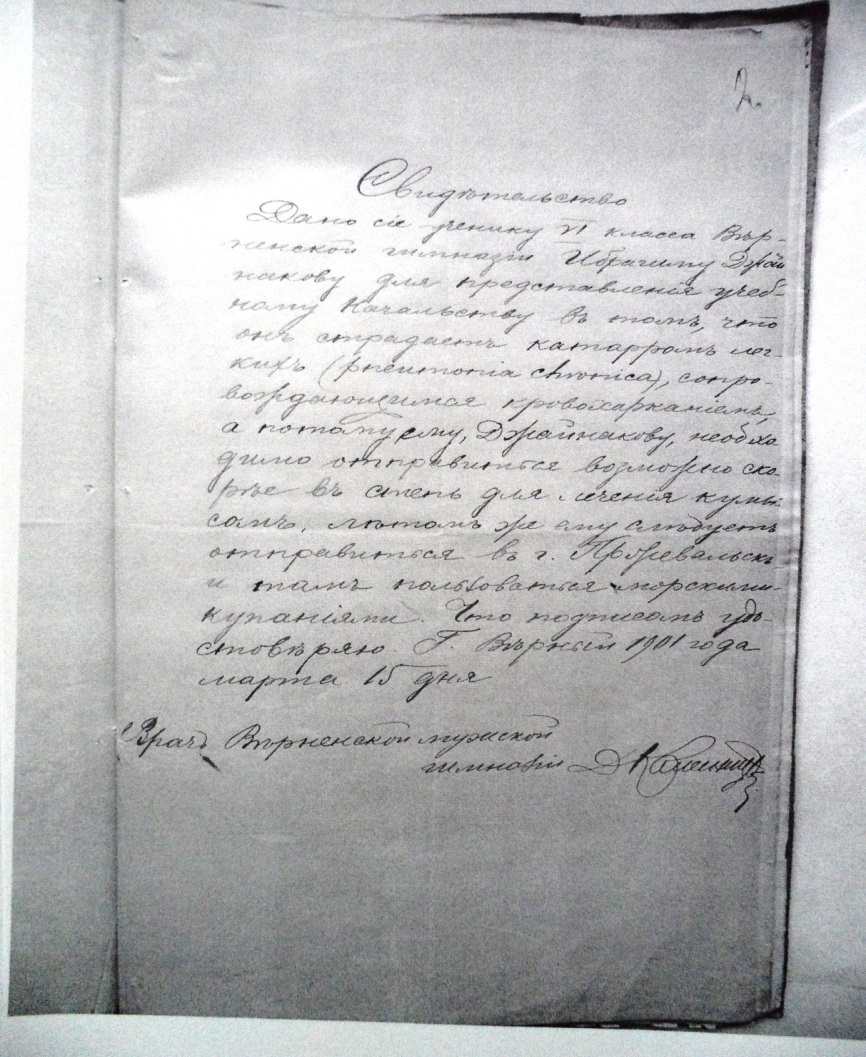 2.
Свидѣтельство
Дано сіе ученику VI класса Вѣр-
ненской гимназіи Ибрагиму Джай
накову для представленія учеб-
ному Начальству въ томъ, что
онъ страдаетъ катарромъ лег-
кихъ (pneumonia chronica), сопро-
вождающимся кровохарканіемъ,
а потому ему, Джайнакову, необхо
димо отправиться возможно ско
рѣе въ степь для леченія кумы-
сомъ, лѣтомъ же ему слѣдуетъ
отправиться въ г. Пржевальскъ
и тамъ пользоваться морскими
купаніями. Что подписомъ удо-
стовѣряю. Г. Вѣрный 1901 года
марта 15 дня
Врачъ Вѣрненской мужской
гимназіи Д